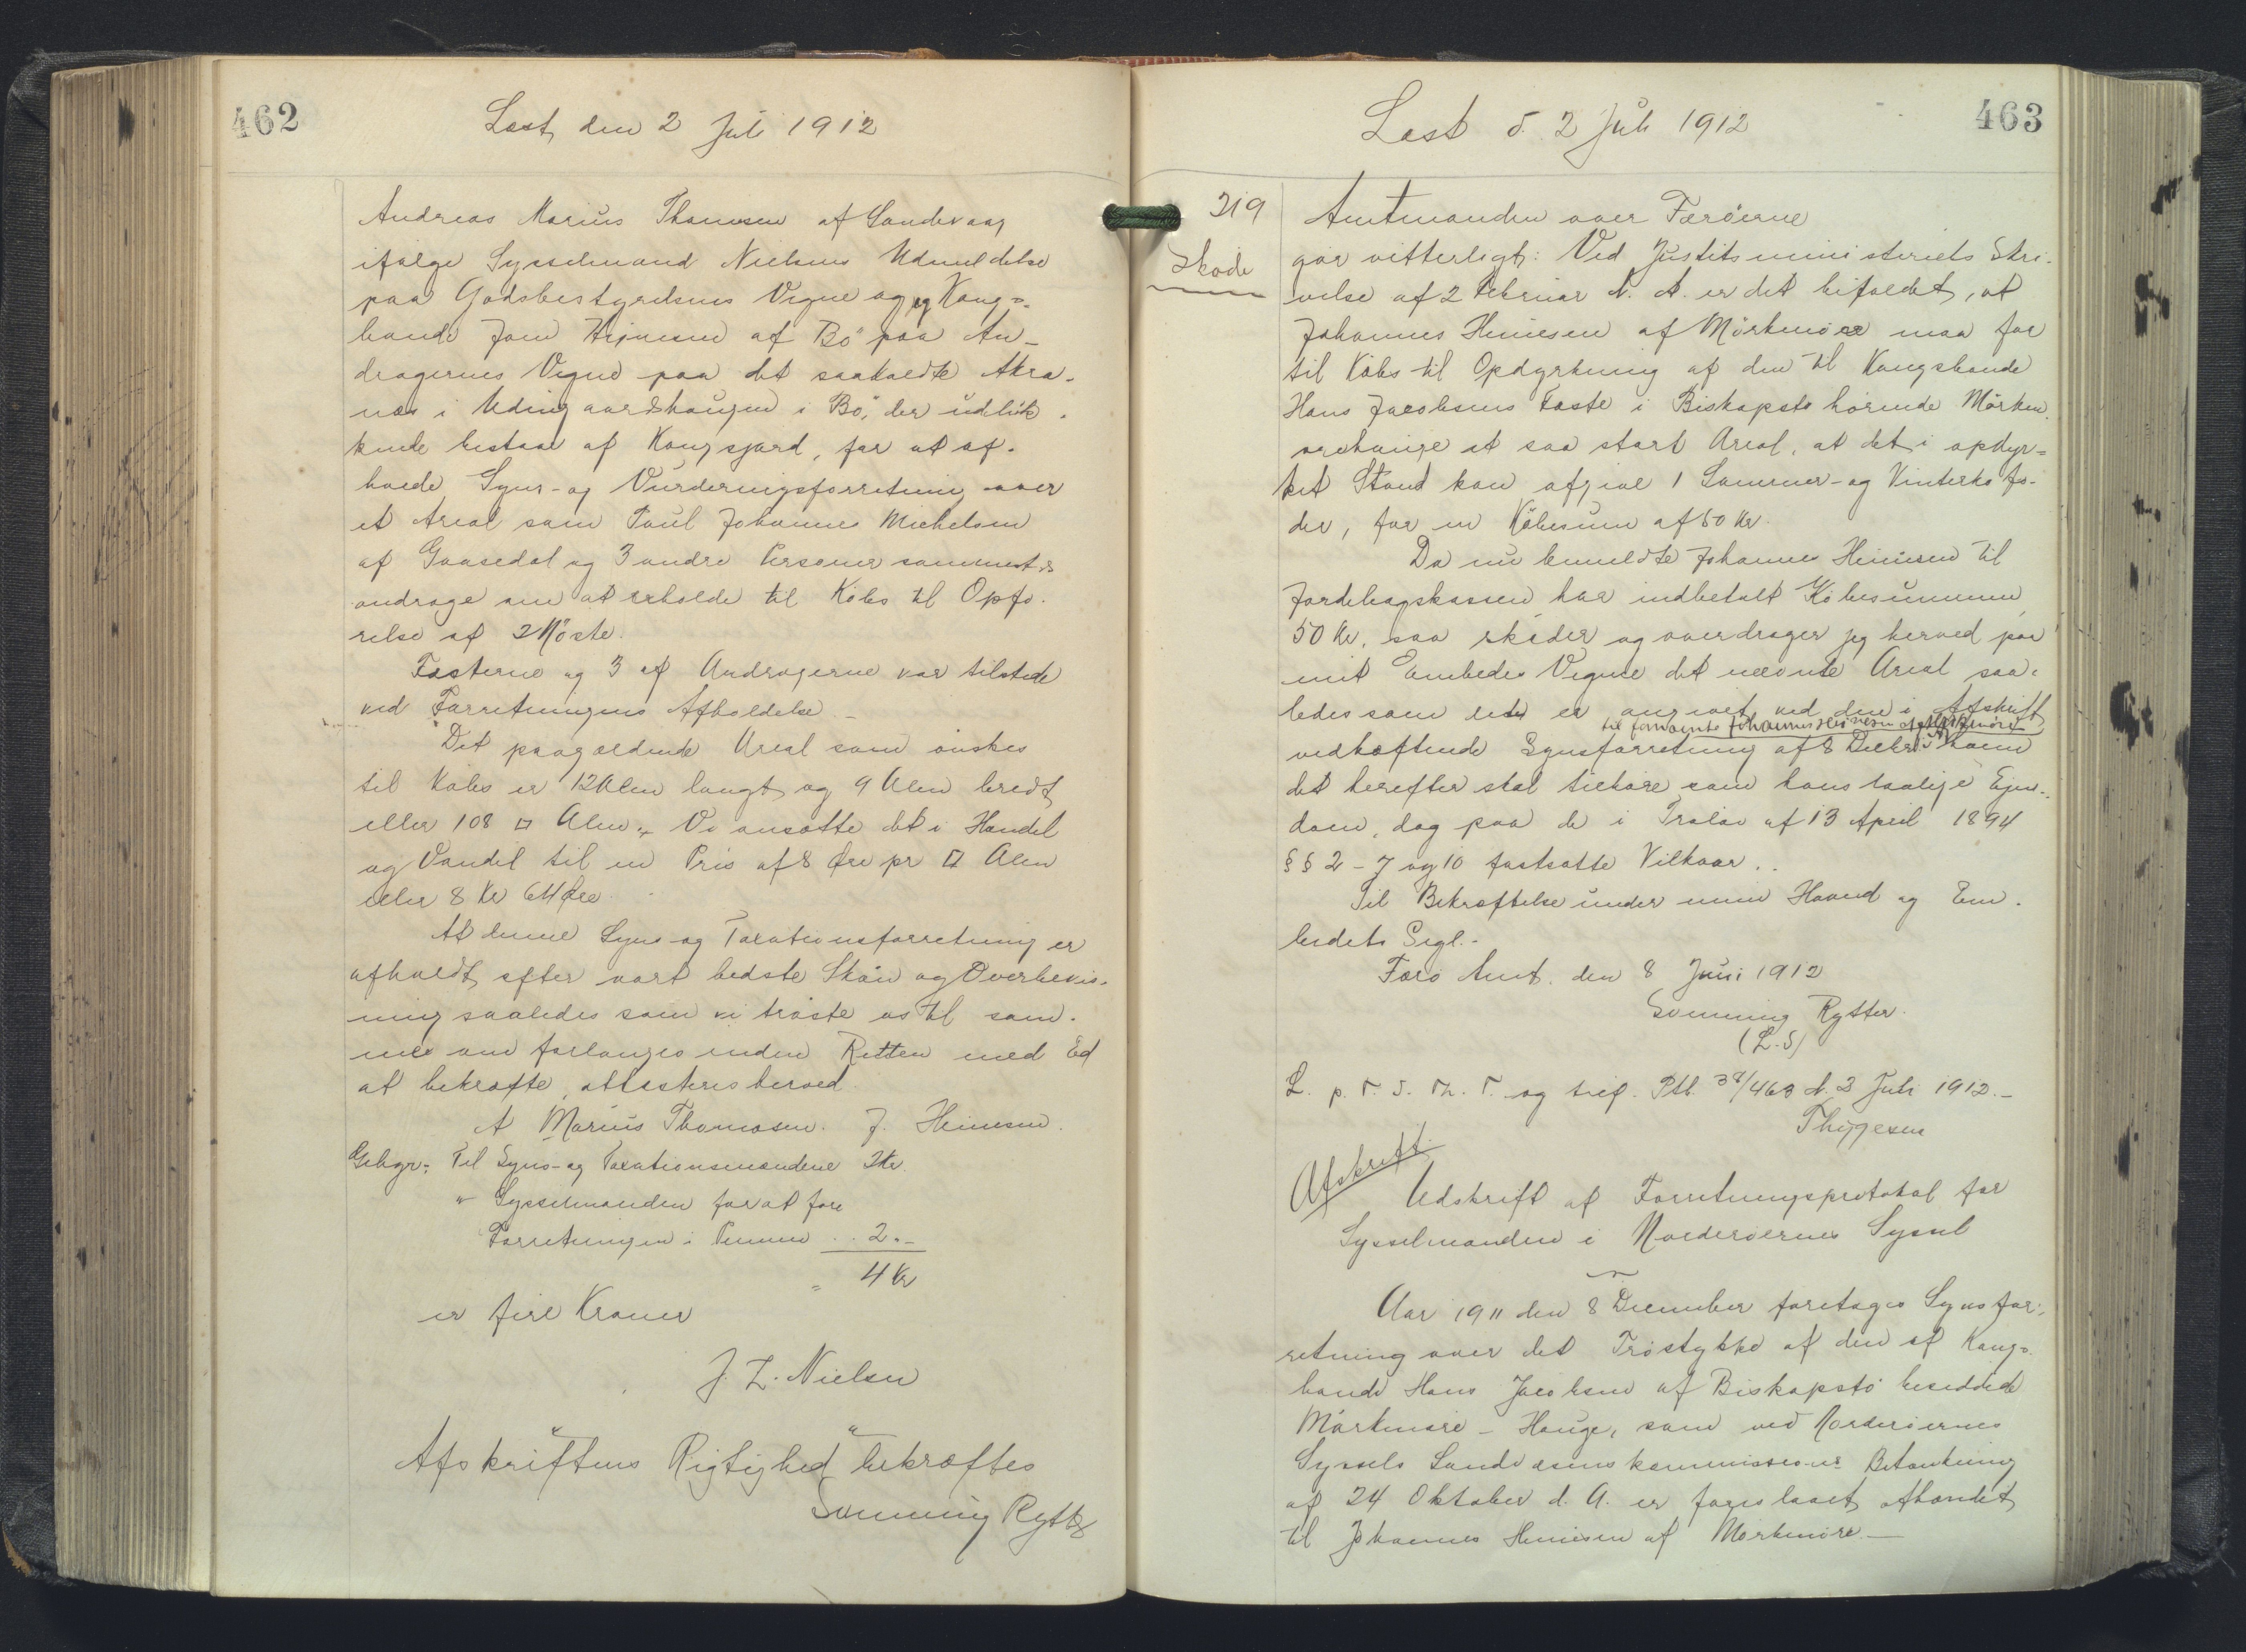 462
Læst den 2 Juli 1912
Andreas Marius Thomsen af Sandevaag
ifølge Sysselmand Nielsens Udmeldelse
paa Godsbestyrelsens Vegne og Kongs-
bonde Joen Hejnesen af Bø paa An-
dragernes Vegne paa det saakaldte Akra-
næs i Udingaardshaugen i Bø, der udeluk-
kende bestaar af Kongsjord, for at af-
holde Syns- og Vurderingsforretning over
et Areal som Poul Johannes Michelsen
af Gaasedal og 3 andre Personer sammesteds
andrage om at erholde til Købs til Opfø-
relse af 2 Nöste.
Fæsterne og 3 af Andragerne var tilstede
ved Forretningens Afholdelse –
Det paagældende Areal som ønskes
til Købs er 12 Alen langt og 9 Alen bredt
eller 108 □ Alen. Vi ansatte det i Handel
og Vandel til en Pris af 8 Øre pr □ Alen
eller 8 Kr 64 Øre.
At denne Syns- og Taxationsforretning er
afholdt efter vort bedste Skøn og Overbevis-
ning saaledes som vi trøste os til sam-
me om forlanges inden Retten med Ed
at bekræfte, attesteres herved.
A Marius Thomasen. J. Heinesen.
Gebyr: Til Syns- og Taxationsmændene 2 Kr.
" Sysselmanden for at føre
Forretningen i Pennen .. 2 -
= 4 Kr
er fire Kroner
J. Z. Nielsen
Afskriftens Rigtighed bekræftes
Svenning Rytter
463
Læst d. 2 Juli 1912
319
Skøde
Amtmanden over Færøerne
gør vitterligt: Ved Justitsministeriets Skri-
velse af 2 Februar d. A. er det bifaldet, at
Johannes Heinesen af Mörkenöre maa faa
til Købs til Opdyrkning af den til Kongsbonde
Hans Jacobsens Fæste i Biskopstø hörende Mörken-
örehauge et saa stort Areal, at det i opdyr-
ket Stand kan afgive 1 Sommer- og Vinterko fo-
der, for en Købesum af 50 Kr.
Da nu bemeldte Johannes Heinesen til
Jordebogskassen har indbetalt Købesummen
50 Kr. saa skøder og overdrager jeg herved paa
mit Embedes Vegne det nævnte Areal saa-
ledes som det er angivet ved den i Afskrift
til fornævnte Johannes Heinesen af Mörkenöre
vedhæftende Synsforretning af 8 Decbr.
det herefter skal tilhøre som hans lovlige Ejen-
dom, dog paa de i Prolov af 13 April 1894
§§ 2-7 og 10 fastsatte Vilkaar.
Til Bekræftelse under min Haand og Em-
bedets Segl.
Færø Amt. den 8 Juni 1912
Svenning Rytter.
(L.S)
L. p. F. S. Th. T. og Ptl. 463 d. 2 Juli 1912.-
Thygesen
Afskrift
Udskrift af Forretningsprotokol for
Sysselmanden i Norderøernes Syssel
Aar 1911 den 8 December foretages Synsfor-
retning over det Træstykke af den af Kongs-
bonde Hans Jacobsen af Biskopstö besiddede
Mörkenöre - Hauge, som ved Norderøernes
Syssels Landvæsenskommissions Betænkning
af 24 Oktober d. A. er foreslaaet afhændet
til Johannes Heinesen af Mörkenöre –